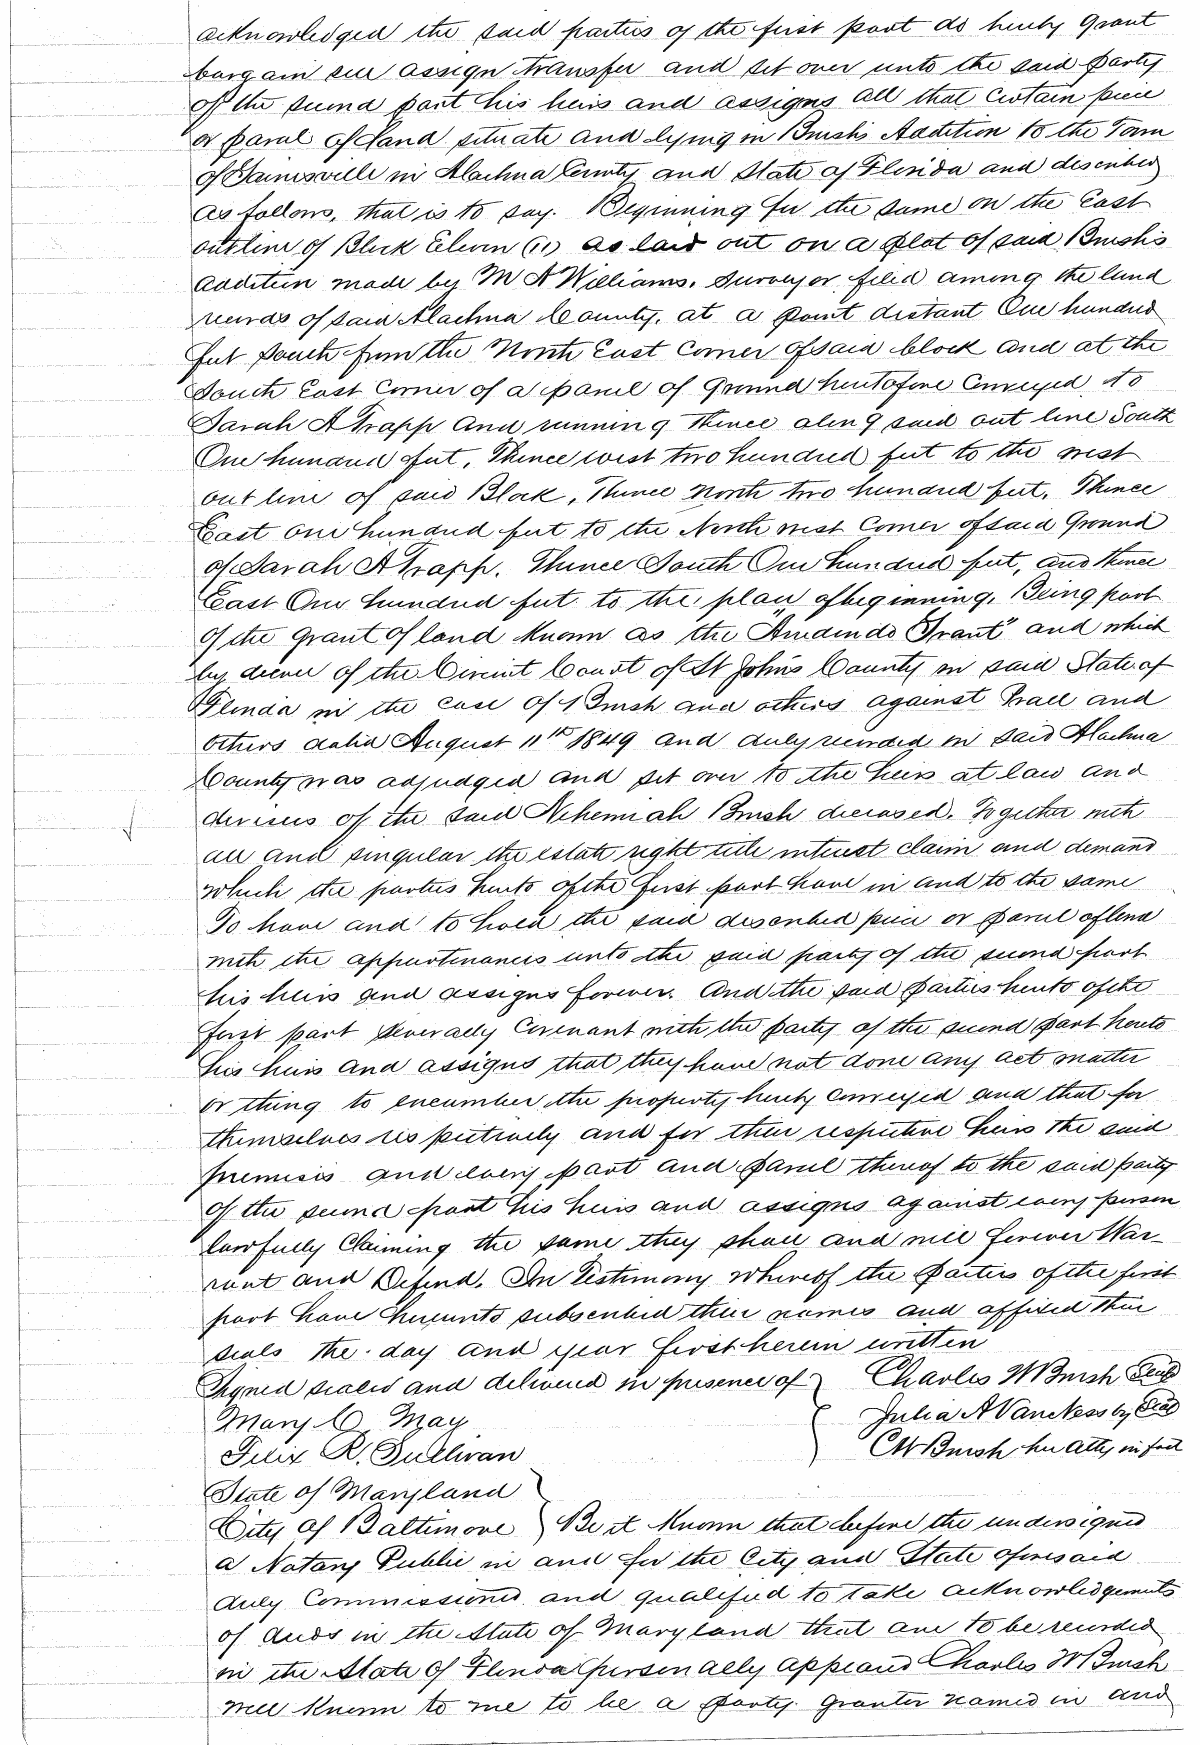 acknowledged the said parties of the first part do hereby Grant
bargain sell assign transfer and set over unto the said Party
of the second part his heirs and assigns all that certain piece
or parcel of land situate and lying in Brush's Addition to the Town
of Gainesville in Alachua County and State of Florida and described
as follows, that is to say. Beginning for the same on the East
outline of Block Eleven (11) as laid out on a plat of said Brush's
addition made by M A Williams. Surveyor filed among the land
records of said Alachua County, at a point distant One hundred
feet South from the North East Corner of said block and at the
South East Corner of a parcel of Ground heretofore Conveyed to
Sarah A Trapp And running Thence along said out line South
One hundred feet, Thence west two hundred feet to the west
out line of said Block, Thence North two hundred feet, Thence
East one hundred feet to the North west Corner of said Ground
of Sarah A Trapp. Thence South One hundred feet, and thence
East One hundred feet to the place of beginning, Being part
of the Grant of land Known as the "Arredondo Grant" and which
by decree of the Circuit Court of St John's County in said State of
Florida in the case of Brush and others against Hall and
others dated August 11th 1849 and duly recorded in said Alachua
County was adjudged and set over to the heirs at law and
devisees of the said Nehemiah Brush deceased. Together with
all and singular the estate right title interest claim and demand
which the parties hereto of the first part have in and to the same
To have and to hold the said described piece or parcel of land
with the appurtinances unto the said party of the second part
his heirs and assigns forever. And the said Parties hereto of the
first part severally Covenant with the party of the second part hereto
his heirs and assigns that they have not done any act matter
or thing to encumber the property hereby conveyed and that for
themselves respectively and for their respective heirs the said
premises and every part and parcel thereof to the said party
of the second part his heirs and assigns against every person
lawfully Claiming the same they shall and will forever War-
rant and Defend. In Testimony whereof the Parties of the first
part have hereunto subscribed their names and affixed their
seals the day and year first herein written
Signed sealed and delivered in presence of } Charles W Brush Seal
Mary C. May { Julia A Van Ness by Seal
Felix R. Sullivan ) C W Brush her Atty in fact
State of Maryland }
City of Baltimore } Be it Known that before the undersigned
a Notary Public in and for the City and State aforesaid
duly Commissioned and qualified to take acknowledgements
of deeds in the State of Maryland that are to be recorded
in the State of Florida personally appeared Charles W Brush
well Known to me to be a party Grantor named in and